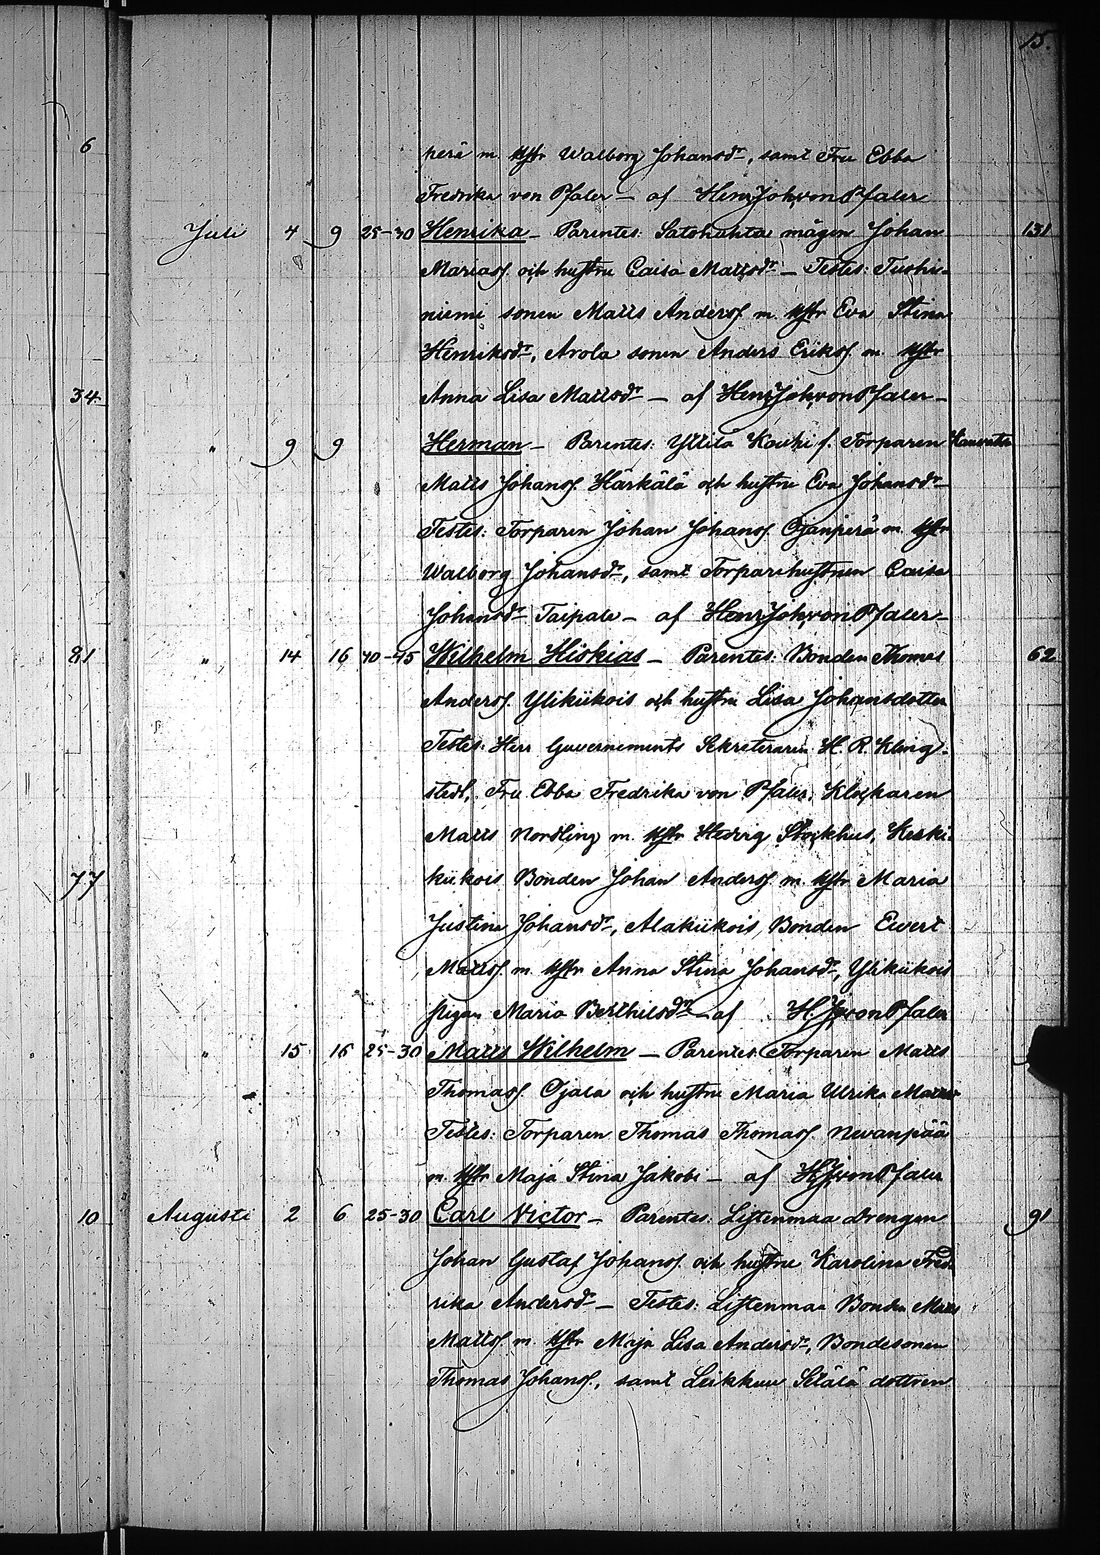 15.
6
perä m. hstr Walborg Johansdr, samt Fru Ebba
Fredrika von Pfaler — af HenrJohvonPfaler
Juli 4 9 25-30 Henrika — Parentes: Satohahta mågen Johan 131
Mariasf. och hustru Caisa Mattsdr — Testes: Tuohi-
niemi sonen Matts Andersf. m. hstr Eva Stina
Henriksdr, Arola sonen Anders Eriksf. m. hstr
34 Anna Lisa Mattsdr — af HenrJohvonPfaler —
" 9 9 Herman — Parentes: Yttilä Kouhi f. Torparen
Matts Johansf. Härkälä och hustru Eva Johansdr —
Testes: Torparen Johan Johansf. Ojanperä m. hstr
Walborg Johansdr, samt Torparehustrun Caisa
Johansdr Taipale — af HenrJohvonPfaler —
81 " 14 16 40-45 Wilhelm Hiskias — Parentes: Bonden Thomas 62
Andersf. Ylikiikois och hustru Lisa Johansdotter
Testes: Herr Guvernements Sekreteraren H. R. Kling-
stedt, Fru Ebba Fredrika von Pfaler, Klockaren
Matts Nordling m. hstr Hedvig Stockhus, Keski-
77 kiikois Bonden Johan Andersf. m. hstr Maria
Justina Johansdr, Alakiikois Bonden Evert
Mattsf. m. hstr Anna Stina Johansdr, Ylikiikois
pigan Maria Berthilsdr — af H.JvonPfaler
" 15 16 25-30 Matts Wilhelm — Parentes: Torparen Matts
Thomasf. Ojala och hustru Maria Ulrika
Testes: Torparen Thomas Thomasf. Nevanpää
m. hstr Maja Stina Jakobi — af H.JvonPfaler
10 Augusti 2 6 25-30 Carl Victor — Parentes: Liftenmaa drengen 91
Johan Gustaf Johansf. och hustru Karolina Fred-
rika Andersdr — Testes: Liftenmaa Bonden Matts
Mattsf. m. hstr Maja Lisa Andersdr, Bondesonen
Thomas Johansf., samt Leikkuu Sälä dottren